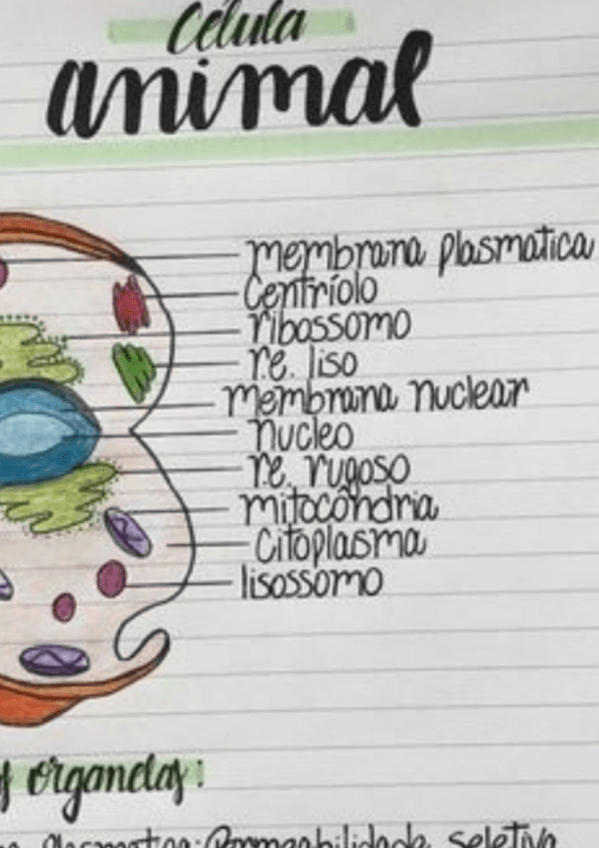 Célula
animal
membrana plasmatica
Centríolo
ribossomo
r.e. liso
membrana nuclear
nucleo
r.e. rugoso
mitocôndria
Citoplasma
lisossomo
organelas:
plasmatica: Permeabilidade seletiva